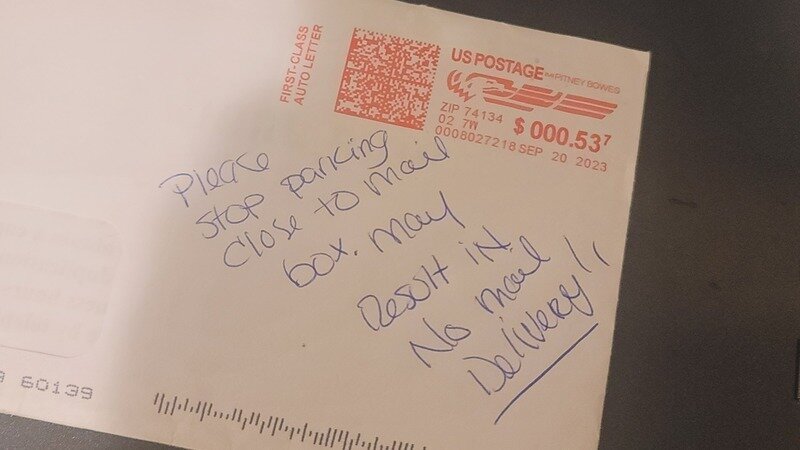 FIRST-CLASS
AUTO LETTER
US POSTAGE IMI PITNEY BOWES
ZIP 74134
02 7W
$ 000.53⁷
0008027218 SEP 20 2023
Please
Stop parking
Close to mail
box. May
Result in
No mail
Delivery!!
60139